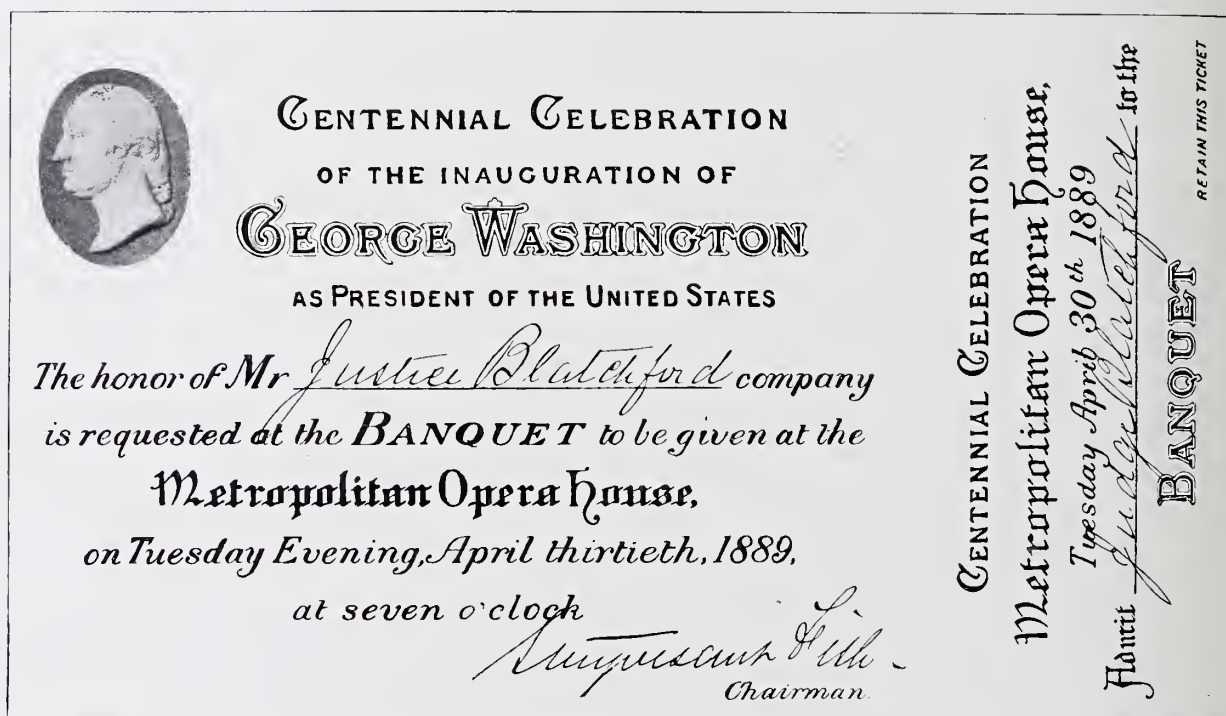 CENTENNIAL CELEBRATION
OF THE INAUGURATION OF
GEORGE WASHINGTON
AS PRESIDENT OF THE UNITED STATES
The honor of Mr Justice Blatchford company
is requested at the BANQUET to be given at the
Metropolitan Opera House,
on Tuesday Evening, April thirtieth, 1889,
at seven o'clock
Stuyvesant Fish
Chairman.
CENTENNIAL CELEBRATION
Metropolitan Opera House,
Tuesday April 30th 1889
Admit Judge Blatchford to the
BANQUET
RETAIN THIS TICKET